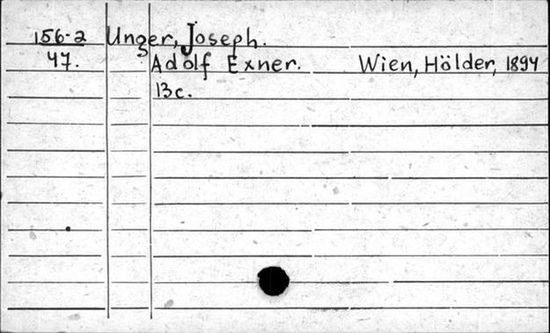 156-2 Unger, Joseph.
47. Adolf Exner. Wien, Hölder, 1894
13c.